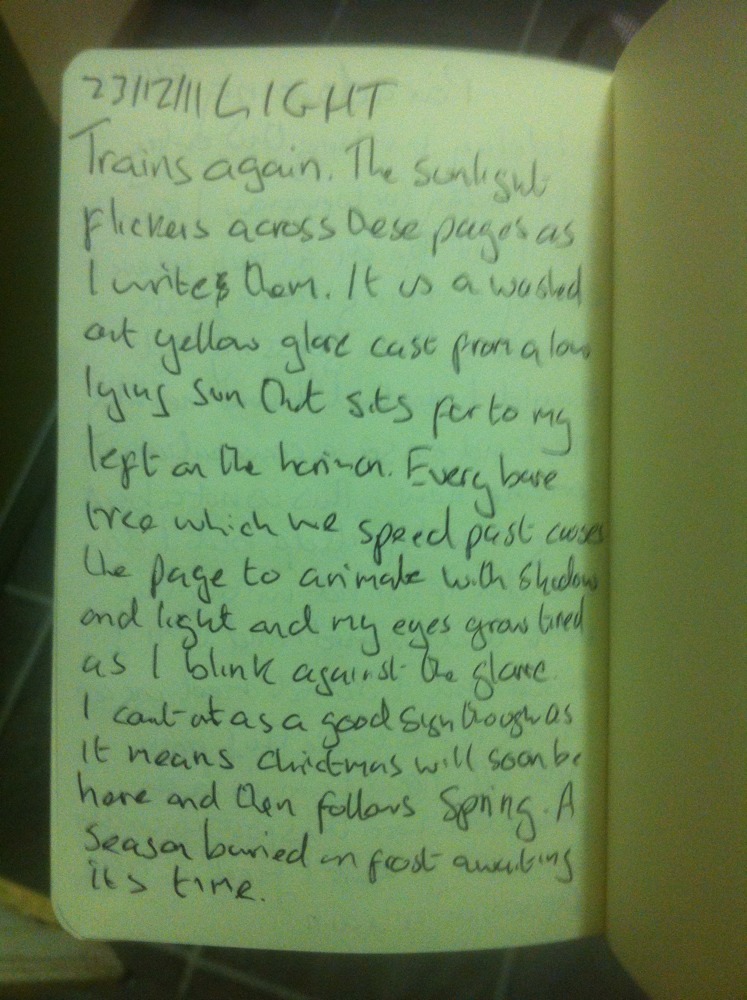 23/12/11 LIGHT
Trains again. The sunlight
flickers across these pages as
I write them. It is a washed
out yellow glare cast from a low
lying sun that sits far to my
left on the horizon. Every bare
tree which we speed past causes
the page to animate with shadow
and light and my eyes grow tired
as I blink against the glare.
I count it as a good sign though as
it means christmas will soon be
here and then follows Spring. A
season buried in frost awaiting
its time.